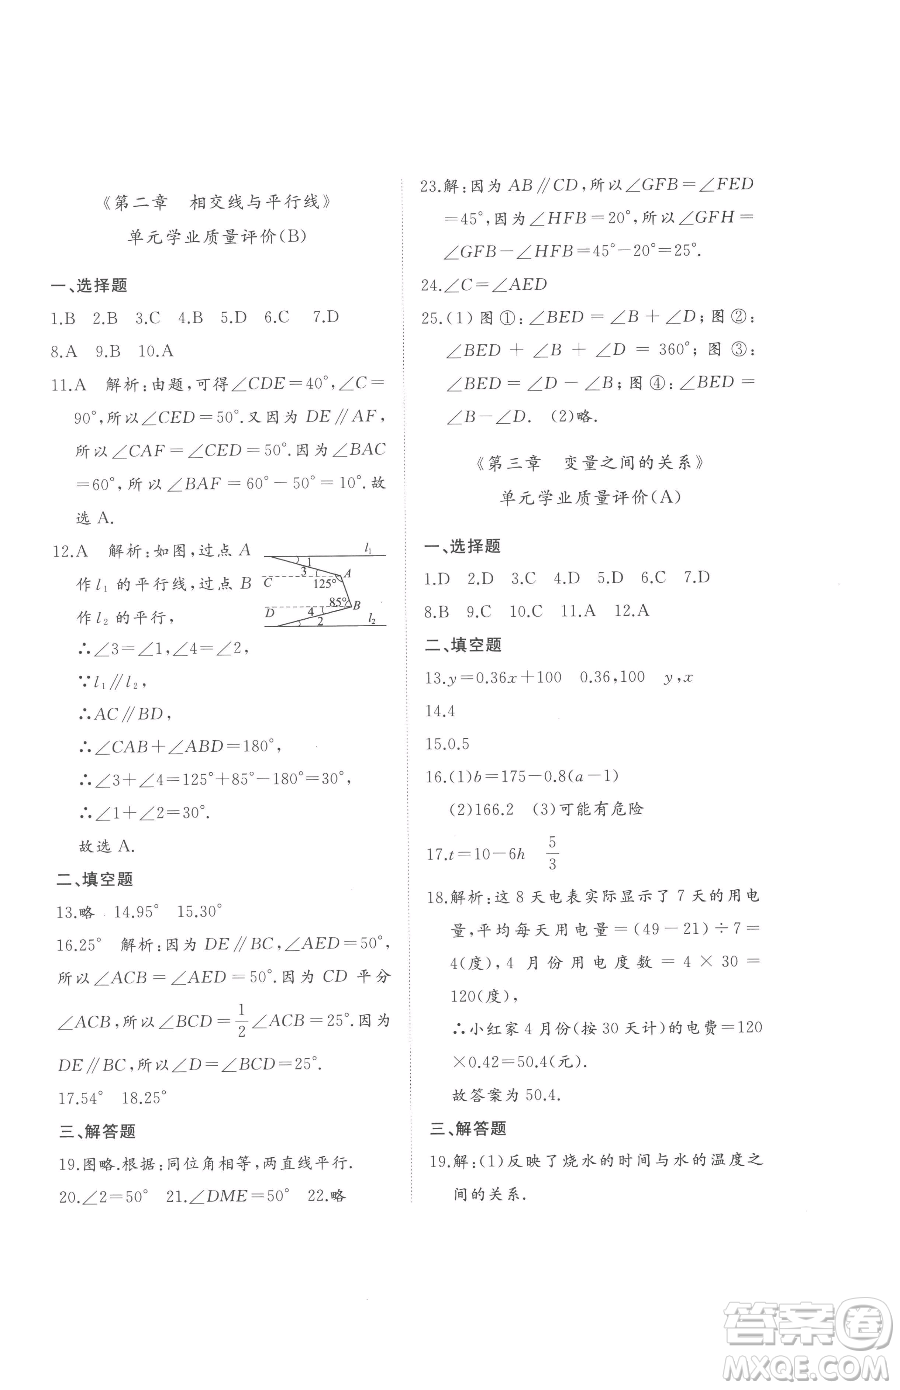 《第二章　相交线与平行线》
单元学业质量评价(B)
一、选择题
1.B　2.B　3.C　4.B　5.D　6.C　7.D
8.A　9.B　10.A
11.A　解析:由题,可得∠CDE=40°,∠C=
90°,所以∠CED=50°.又因为 DE∥AF,
所以∠CAF=∠CED=50°.因为∠BAC
=60°,所以∠BAF=60°-50°=10°.故
选 A.
12.A　解析:如图,过点 A
作 l₁ 的平行线,过点 B
作 l₂ 的平行,
l₁
1
3
C
A
125°
85°
B
D
4
2
l₂
∴∠3=∠1,∠4=∠2,
∵l₁∥l₂,
∴AC∥BD,
∴∠CAB+∠ABD=180°,
∴∠3+∠4=125°+85°-180°=30°,
∴∠1+∠2=30°.
故选 A.
二、填空题
13.略　14.95°　15.30°
16.25°　解析:因为 DE∥BC,∠AED=50°,
所以∠ACB=∠AED=50°.因为 CD 平分
∠ACB,所以∠BCD=1/2∠ACB=25°.因为
DE∥BC,所以∠D=∠BCD=25°.
17.54°　18.25°
三、解答题
19.图略.根据:同位角相等,两直线平行.
20.∠2=50°　21.∠DME=50°　22.略
23.解:因为 AB∥CD,所以∠GFB=∠FED
=45°,因为∠HFB=20°,所以∠GFH=
∠GFB-∠HFB=45°-20°=25°.
24.∠C=∠AED
25.(1)图①:∠BED=∠B+∠D;图②:
∠BED+∠B+∠D=360°;图③:
∠BED=∠D-∠B;图④:∠BED=
∠B-∠D.　(2)略.
《第三章　变量之间的关系》
单元学业质量评价(A)
一、选择题
1.D　2.D　3.C　4.B　5.C　6.C　7.D
8.B　9.C　10.C　11.A　12.A
二、填空题
13.y=0.36x+100　0.36,100　y,x
14.4
15.0.5
16.(1)b=175-0.8(a-1)
(2)166.2　(3)可能有危险
17.t=10-6h　5/3
18.解析:这 8 天电表实际显示了 7 天的用电
量,平均每天用电量=(49-21)÷7=
4(度),4 月份用电度数=4×30=
120(度),
∴小红家 4 月份(按 30 天计)的电费=120
×0.42=50.4(元).
故答案为 50.4.
三、解答题
19.解:(1)反映了烧水的时间与水的温度之
间的关系.
答案圈
MXQE.COM